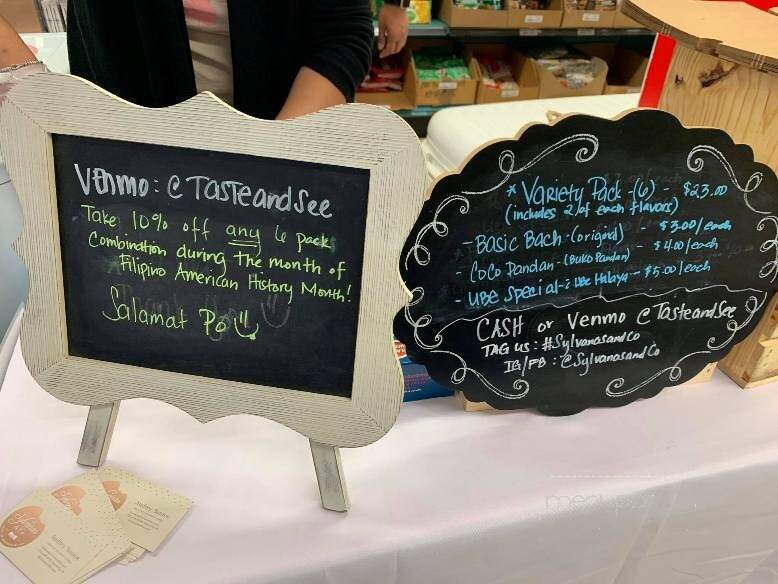 Venmo: @TasteandSee
Take 10% off any 6 pack
Combination during the month of
Filipino American History Month!
Salamat Po
* Variety Pack - (6) - $23.00
(includes 2 of each flavors)
- Basic Bach - (original) $3.00/each
- CoCo Pandan - (Buko Pandan) - $4.00/each
- UBE Special - : Ube Halaya - $5.00/each
CASH or Venmo @TasteandSee
TAG US: #Sylvanasandco
IG/FB: @SylvanasandCo